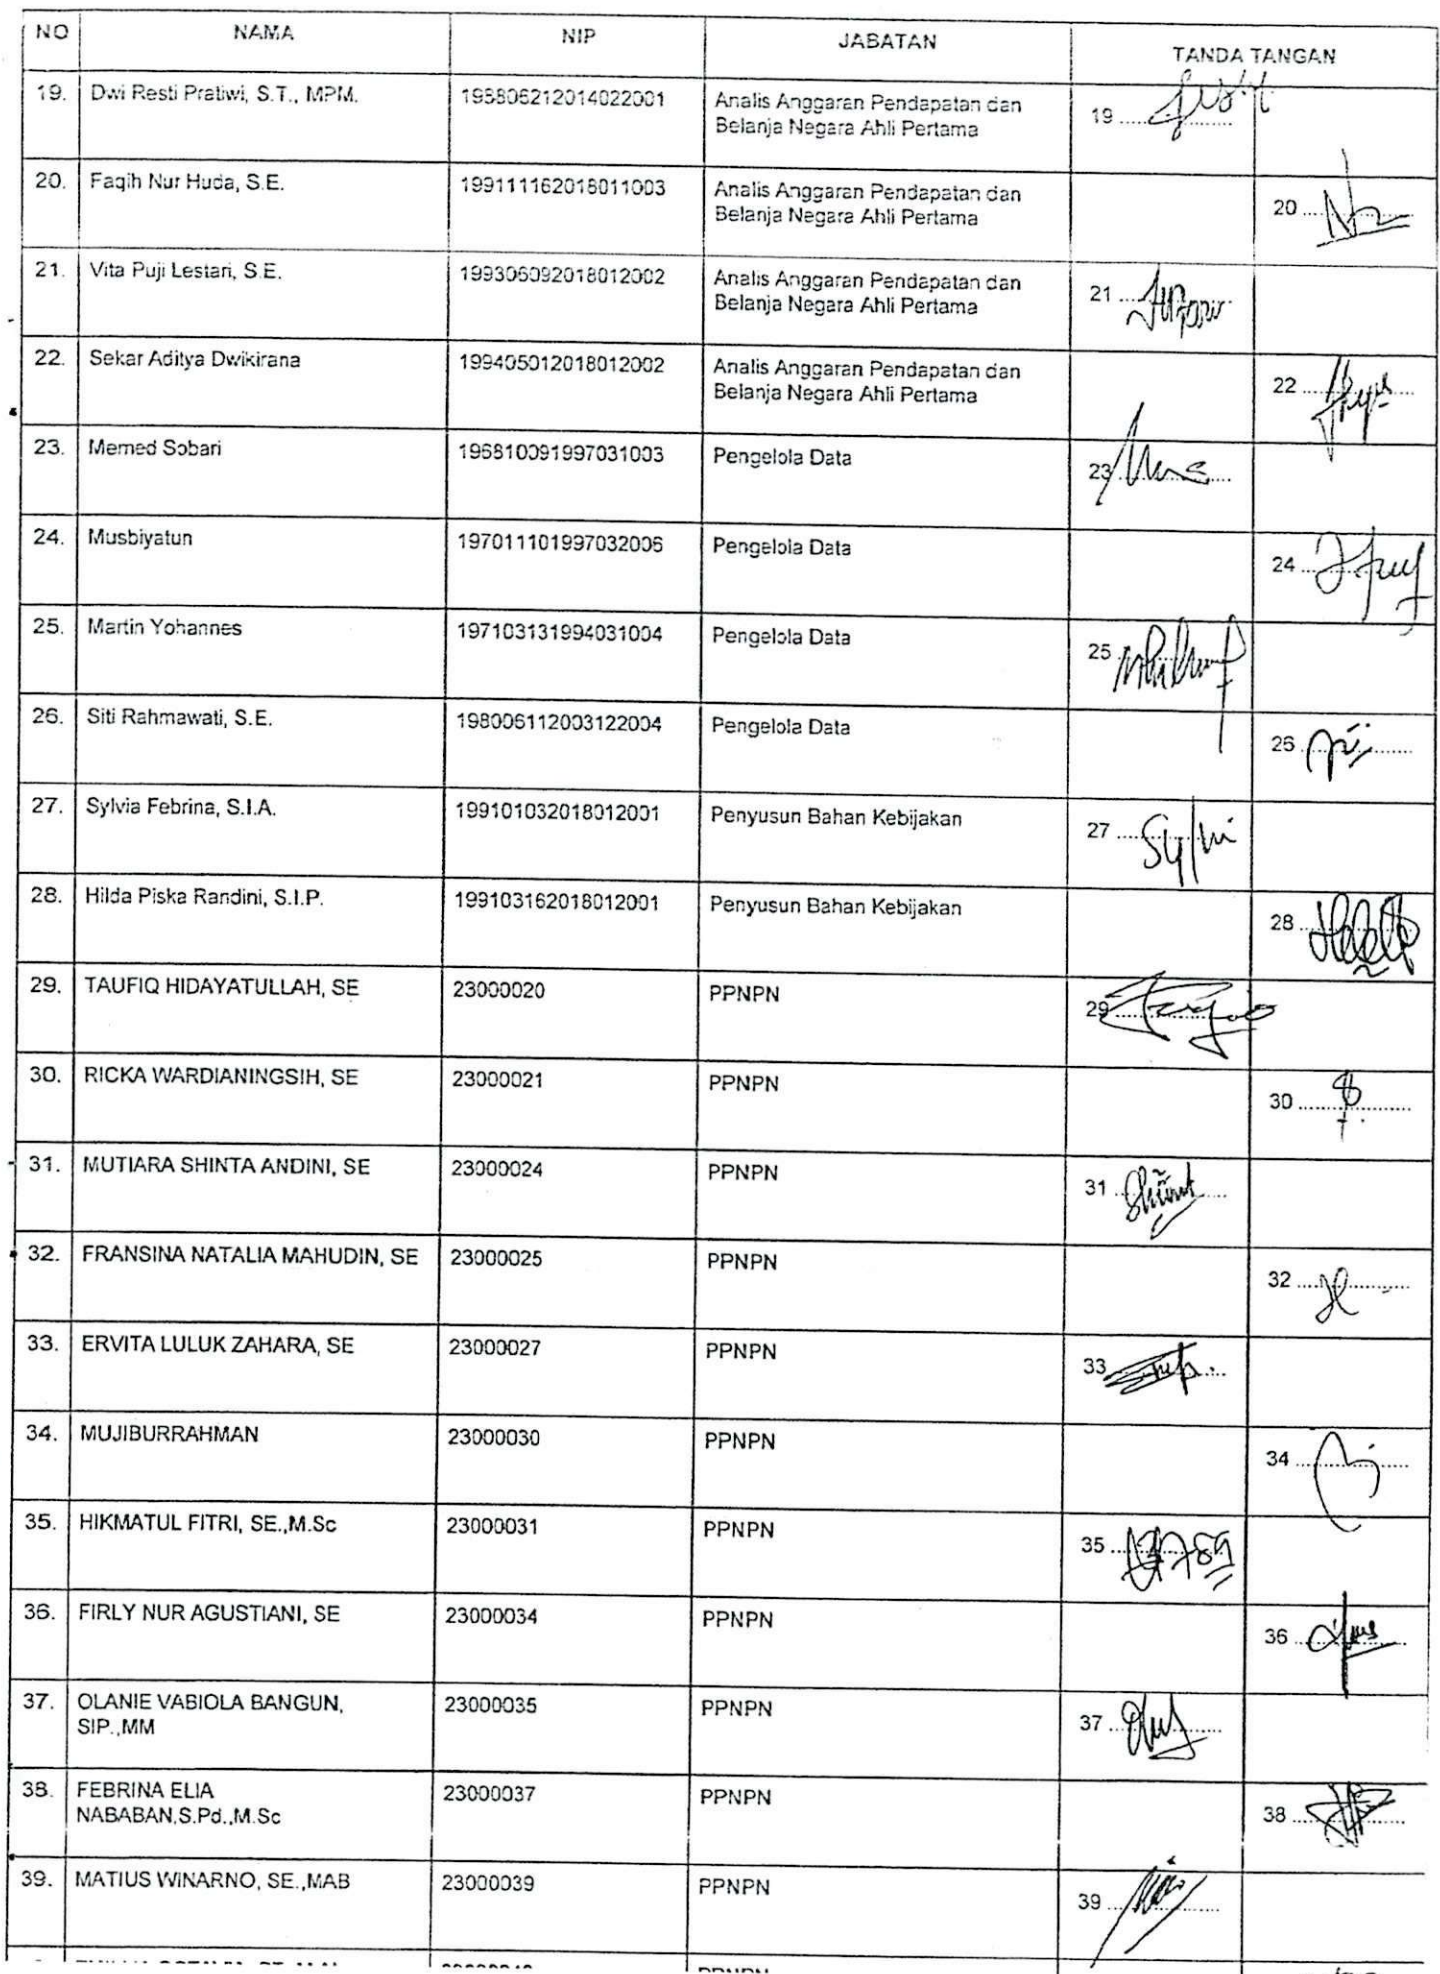 NO NAMA NIP JABATAN TANDA TANGAN
19. Dwi Resti Pratiwi, S.T., MPM. 198806212014022001 Analis Anggaran Pendapatan dan 19
Belanja Negara Ahli Pertama
20. Faqih Nur Huda, S.E. 199111162018011003 Analis Anggaran Pendapatan dan 20
Belanja Negara Ahli Pertama
21. Vita Puji Lestari, S.E. 199306092018012002 Analis Anggaran Pendapatan dan 21
Belanja Negara Ahli Pertama
22. Sekar Aditya Dwikirana 199405012018012002 Analis Anggaran Pendapatan dan 22
Belanja Negara Ahli Pertama
23. Memed Sobari 196810091997031003 Pengelola Data 23
24. Musbiyatun 197011101997032006 Pengelola Data 24
25. Martin Yohannes 197103131994031004 Pengelola Data 25
26. Siti Rahmawati, S.E. 198006112003122004 Pengelola Data 26
27. Sylvia Febrina, S.I.A. 199101032018012001 Penyusun Bahan Kebijakan 27
28. Hilda Piska Randini, S.I.P. 199103162018012001 Penyusun Bahan Kebijakan 28
29. TAUFIQ HIDAYATULLAH, SE 23000020 PPNPN 29
30. RICKA WARDIANINGSIH, SE 23000021 PPNPN 30
31. MUTIARA SHINTA ANDINI, SE 23000024 PPNPN 31
32. FRANSINA NATALIA MAHUDIN, SE 23000025 PPNPN 32
33. ERVITA LULUK ZAHARA, SE 23000027 PPNPN 33
34. MUJIBURRAHMAN 23000030 PPNPN 34
35. HIKMATUL FITRI, SE.,M.Sc 23000031 PPNPN 35
36. FIRLY NUR AGUSTIANI, SE 23000034 PPNPN 36
37. OLANIE VABIOLA BANGUN, 23000035 PPNPN 37
SIP.,MM
38. FEBRINA ELIA 23000037 PPNPN 38
NABABAN,S.Pd.,M.Sc
39. MATIUS WINARNO, SE.,MAB 23000039 PPNPN 39